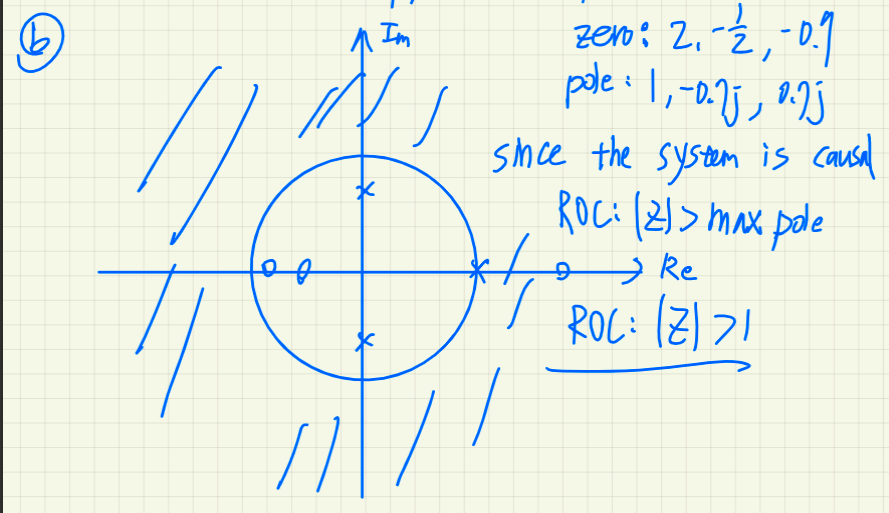 b
Im
zero: 2, -1/2, -0.9
pole: 1, -0.7j, 0.7j
since the system is causal
ROC: |Z| > max pole
Re
ROC: |Z| > 1